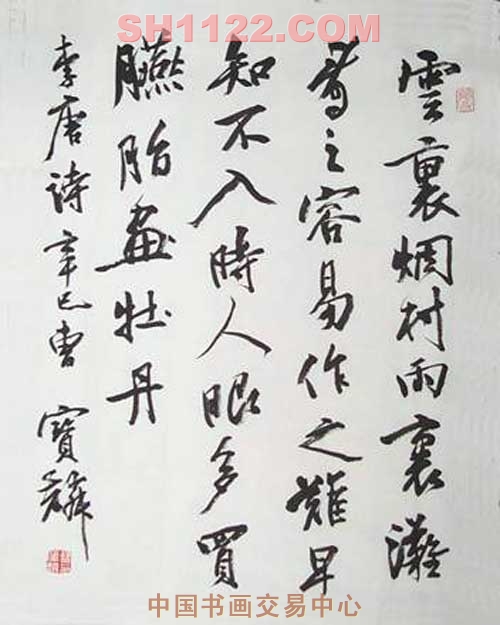 SH1122.COM
雲裏烟村雨裏灘
看之容易作之難早
知不入時人眼多買
臙脂畫牡丹
李唐詩 辛巳曹寶麟
中国书画交易中心